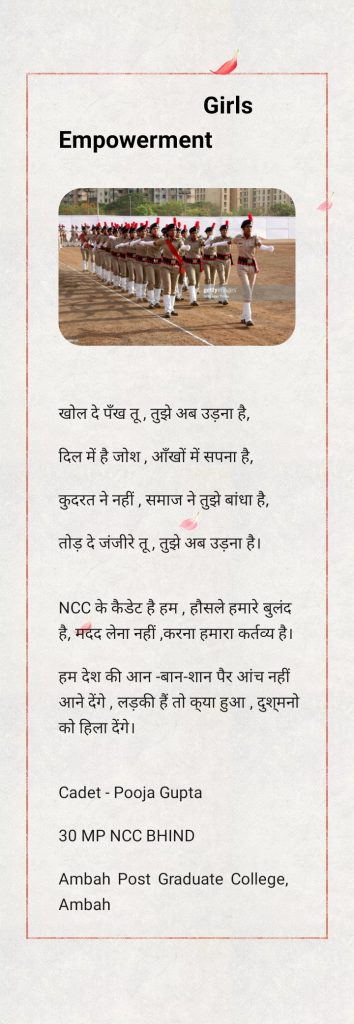 Girls
Empowerment
gettyimages
खोल दे पँख तू , तुझे अब उड़ना है,
दिल में है जोश , आँखों में सपना है,
कुदरत ने नहीं , समाज ने तुझे बांधा है,
तोड़ दे जंजीरे तू , तुझे अब उड़ना है।
NCC के कैडेट है हम , हौसले हमारे बुलंद
है, मदद लेना नहीं ,करना हमारा कर्तव्य है।
हम देश की आन -बान-शान पैर आंच नहीं
आने देंगे , लड़की हैं तो क्या हुआ , दुश्मनो
को हिला देंगे।
Cadet - Pooja Gupta
30 MP NCC BHIND
Ambah Post Graduate College,
Ambah